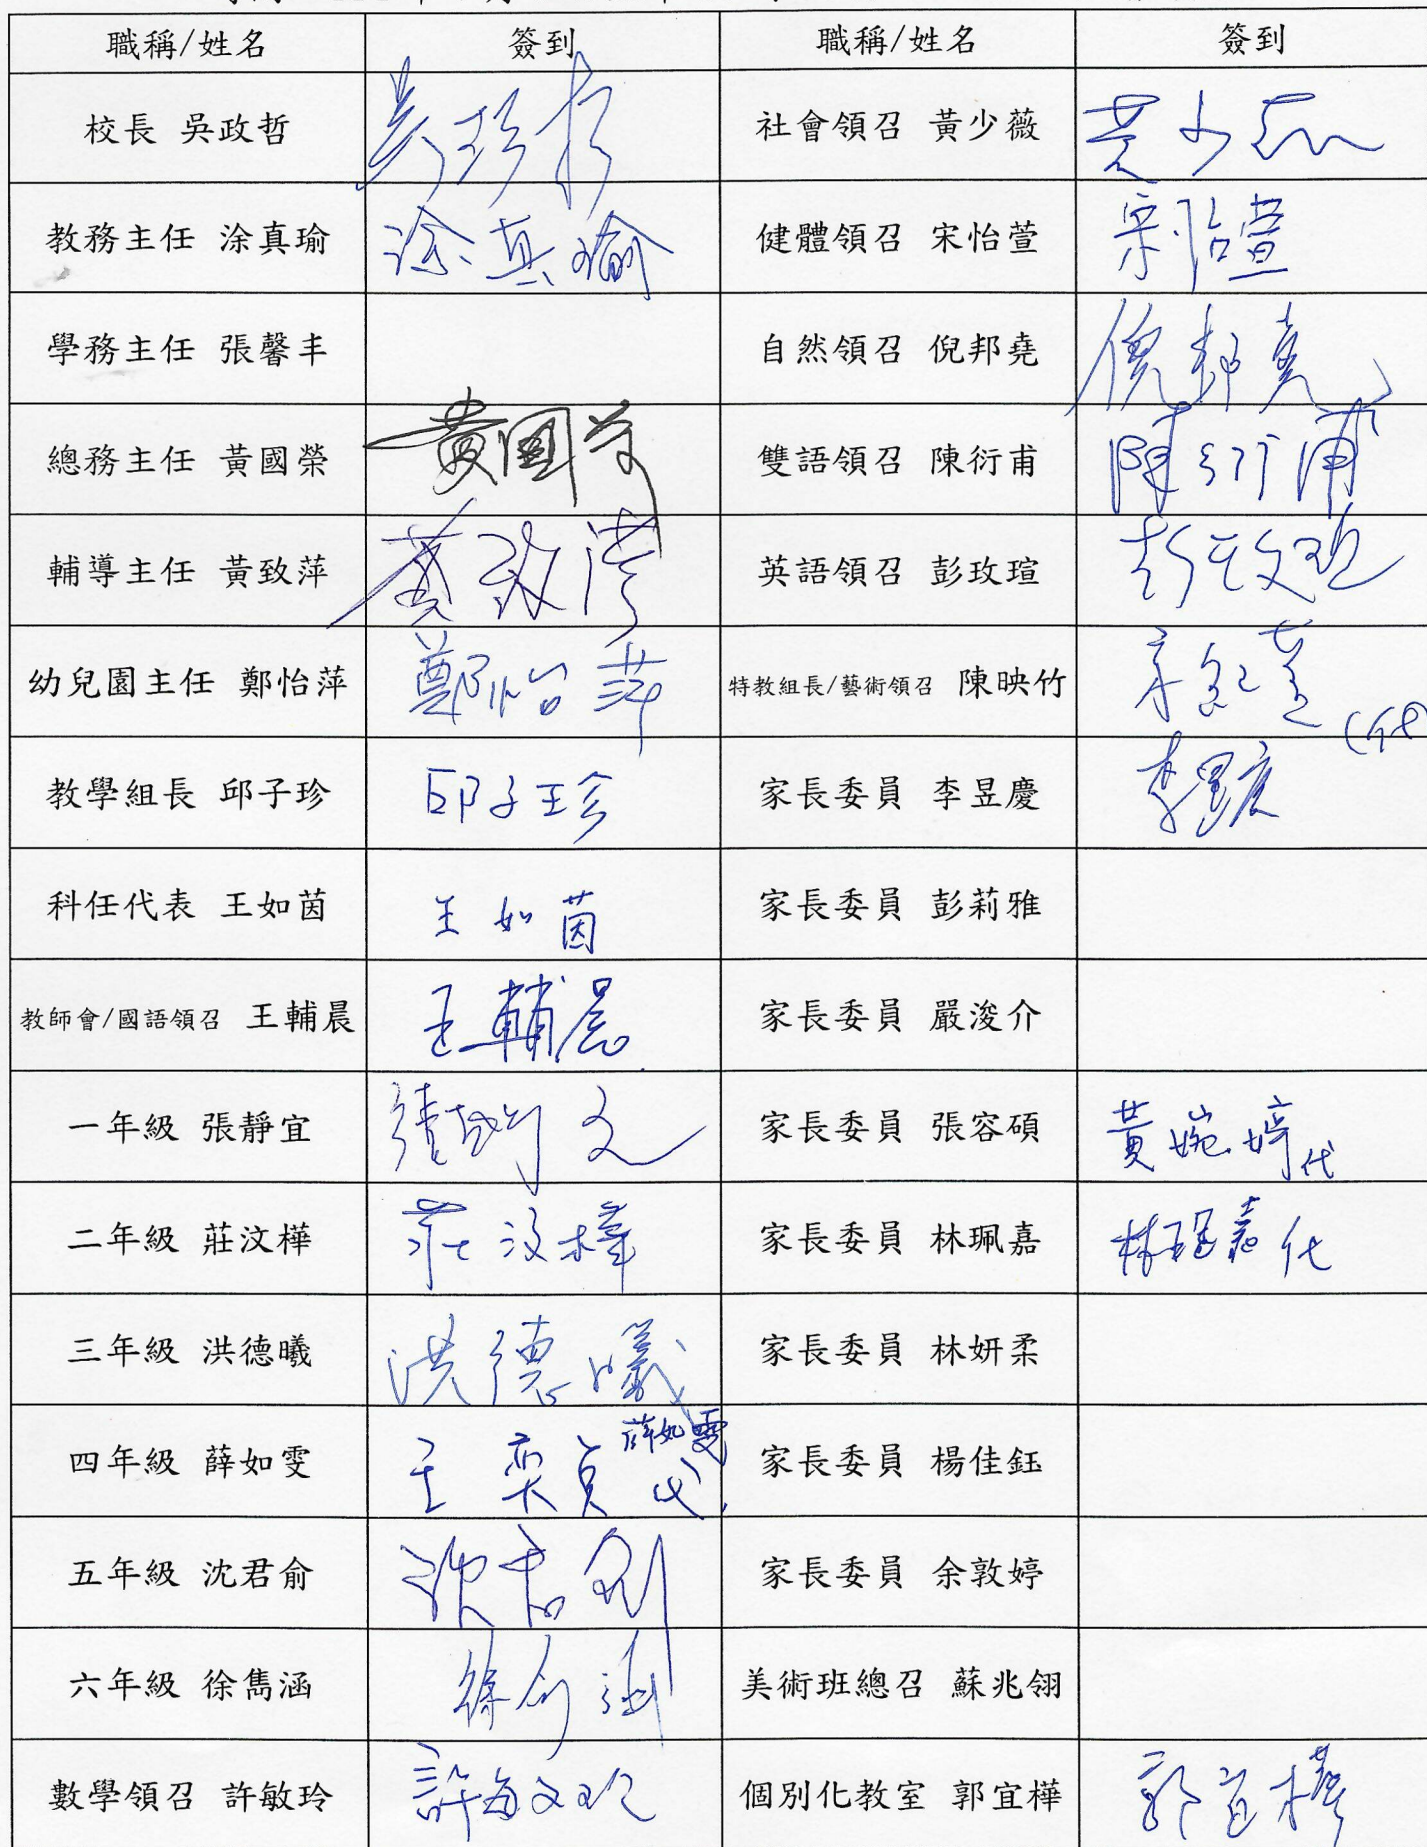 職稱/姓名 簽到 職稱/姓名 簽到
校長 吳政哲 社會領召 黃少薇 黃少薇
教務主任 涂真瑜 涂真瑜 健體領召 宋怡萱 宋怡萱
學務主任 張馨丰 自然領召 倪邦堯 倪邦堯
總務主任 黃國榮 黃國榮 雙語領召 陳衍甫 陳衍甫
輔導主任 黃致萍 黃致萍 英語領召 彭玫瑄 彭玫瑄
幼兒園主任 鄭怡萍 鄭怡萍 特教組長/藝術領召 陳映竹 (代
教學組長 邱子珍 邱子珍 家長委員 李昱慶 李昱慶
科任代表 王如茵 王如茵 家長委員 彭莉雅
教師會/國語領召 王輔晨 王輔晨 家長委員 嚴浚介
一年級 張靜宜 家長委員 張容碩 黃婉婷代
二年級 莊汶樺 莊汶樺 家長委員 林珮嘉 林珮嘉代
三年級 洪德曦 洪德曦 家長委員 林妍柔
四年級 薛如雯 王奕貞 薛如雯代 家長委員 楊佳鈺
五年級 沈君俞 沈君俞 家長委員 余敦婷
六年級 徐雋涵 美術班總召 蘇兆翎
數學領召 許敏玲 許敏玲 個別化教室 郭宜樺 郭宜樺